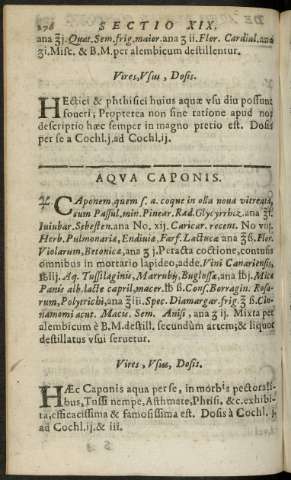 276 SECTIO XIX,
ana ʒj. Quat. Sem. frig. maior. ana ʒ ij. Flor. Cardial. ana
ʒi. Misc. & B.M. per alembicum destillentur.
Vires, Vsus, Dosis.
HEctici & phthisici huius aquæ vsu diu possunt
foueri; Propterea non sine ratione apud nos
descriptio hæc semper in magno pretio est. Dosis
per se a Cochl. j. ad Cochl. ij.
AQVA CAPONIS.
℞ CAponem, quem s. a. coque in olla noua vitreata,
cum Passul. min. Pinear. Rad. Glycyrrhiz. ana ʒſ.
Iuiubar. Sebesten. ana No. xij. Caricar. recent. No vij.
Herb. Pulmonaria, Endiuia, Farf. Lactuca ana ʒ ß. Flor.
Violarum, Betonica, ana ʒ j. Peracta coctione, contusis
omnibus in mortario lapideo, adde. Vini Canariensis,
℔iij. Aq. Tussilaginis, Marrubij, Buglossæ, ana ℔j. Mica
Panis alb. lacte capril. macer. ℔ ß. Cons. Borragin. Rosa-
rum, Polytrichi, ana ʒiij. Spec. Diamargar. frig. ʒ ß. Cin-
namomi acut. Macis. Sem. Anisi, ana ʒ ij. Mixta per
alembicum è B.M. destill. secundùm artem; & liquor
destillatus vsui seruetur.
Vires, Vsus, Dosis.
HÆc Caponis aqua per se, in morbis pectorali-
bus, Tussi nempe, Asthmate, Phtisi, &c. exhibi-
ta, efficacissima & famosissima est. Dosis à Cochl. j.
ad Cochl. ij. & iii.